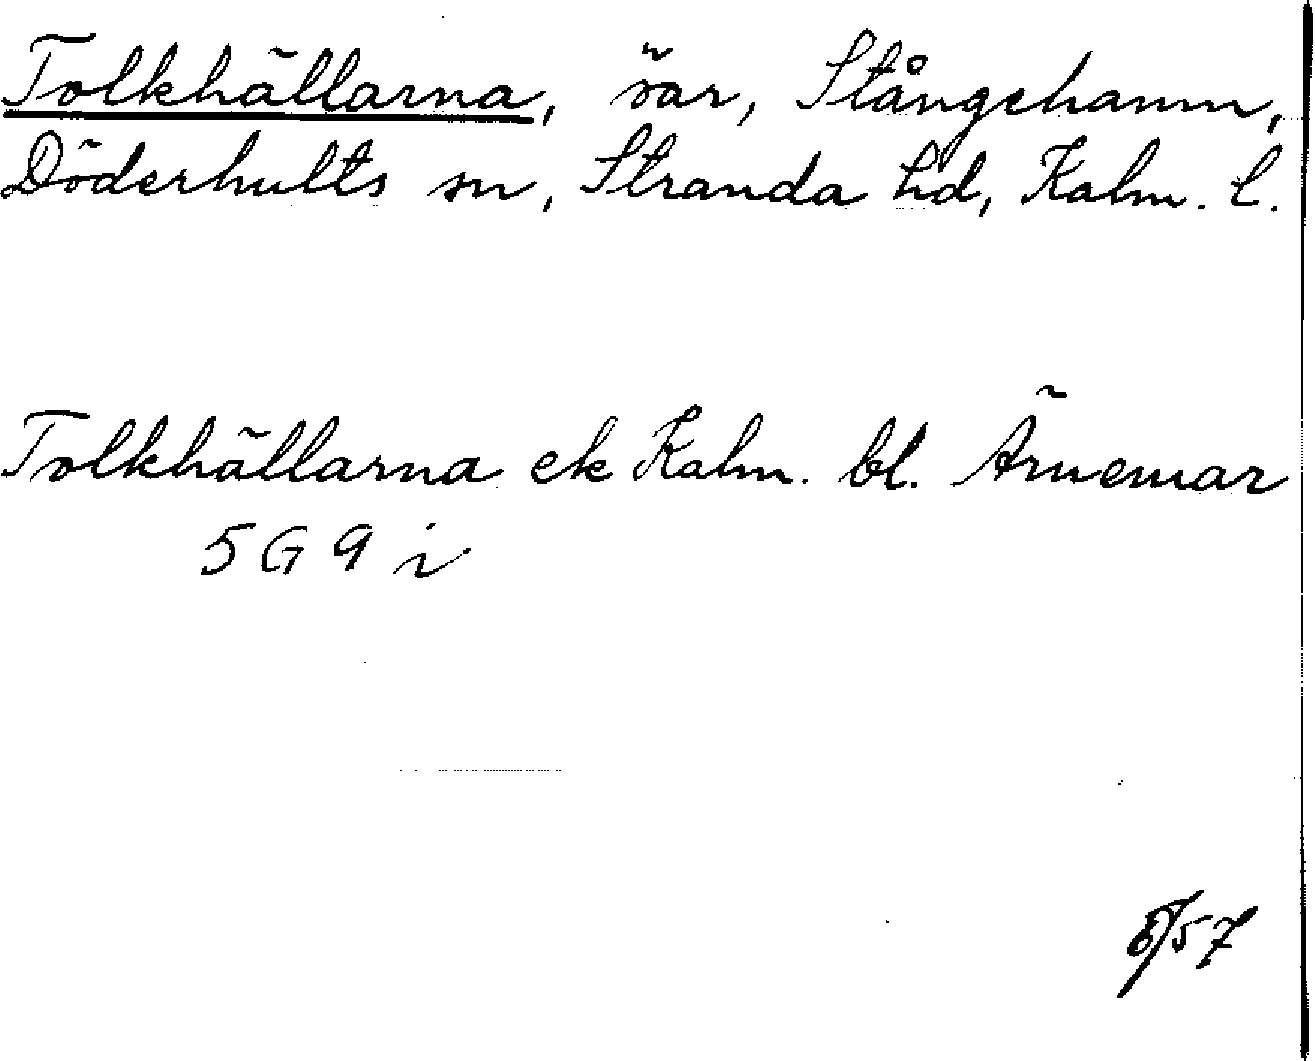 Tolkhällarna, öar, Stångehamn,
Döderhults sn, Stranda hd, Kalm. l.
Tolkhällarna ek Kalm. bl. Ärnemar
5 G 9 i